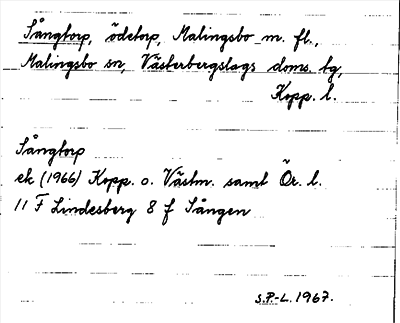 Sångtorp, ödetorp, Malingsbo m. fl.,
Malingsbo sn, Västerbergslags doms. tg,
Kopp. l.
Sångtorp
ek (1966) Kopp. o. Västm. samt Ör. l.
11 F Lindesberg 8 f Sången
S.P-L. 1967.